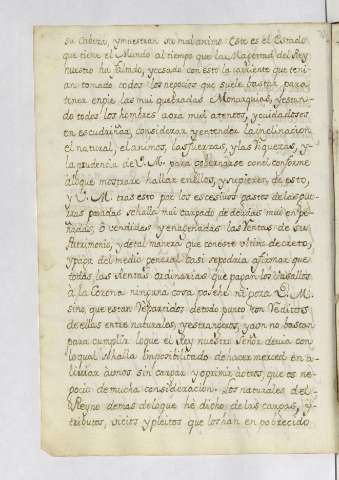 su Cabeza, y muestran su mal animo. Este es el Estado
que tiene el Mundo al tiempo que la Magestad del Rey
nuestro ha faltado, y cesado con esto la corriente que teni-
an tomado todos los negocios que suele bastar para
tener en pie las mui quebradas Monarquias, y estan-
do todos los hombres aora mui atentos, y cuidadosos
en escudriñar, considerar y entender la inclinacion
el natural, el animo, las fuerzas, y las flaquezas, y
la prudencia de V. M. para gobernarse con el conforme
a loque mostrare hallar en ellos, y supieren de esto,
y V. M. tras esto por los excesivos gastos de las gue-
rras pasadas se halla mui cargado de deudas mui empe-
ñadas, ó vendidas y enagenadas las Rentas de su
Patrimonio, y de tal manera que con este ultimo decreto,
y paga del medio general casi se podria afirmar que
todas las Rentas ordinarias que pagan los Vasallos
à la Corona ninguna cosa posehe ni goza V. M.
sino que estan Repartidos de todo punto con Reditos
de ellas entre naturales, y estrangeros, y aun no bastan
para cumplir loque el Rey nuestro Señor devia con
loqual se halla imposibilitado de hacer merced en a-
liviar à unos sin cargar y oprimir à otros, que es ne-
gocio de mucha consideracion. Los naturales del
Reyno demas de loque hé dicho de las cargas, y
tributos, vicios y pleitos que los han enpobrecido